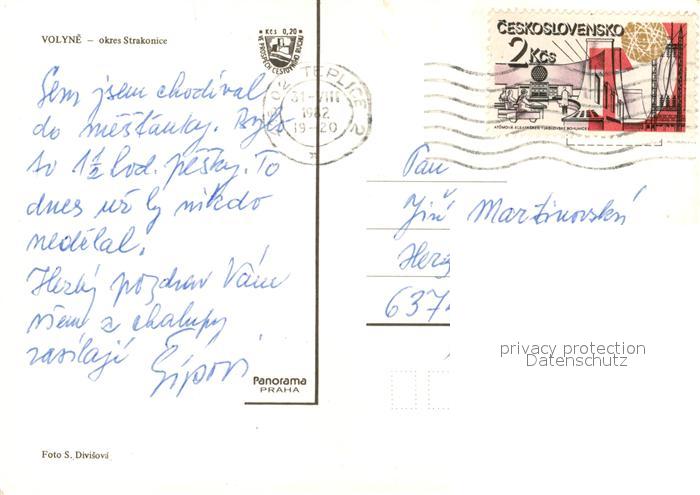 VOLYNĚ – okres Strakonice
Kčs 0,20
VE PROSPĚCH CESTOVNÍHO RUCHU
TEPLICE 2
31.VIII
1982
19-20
ČESKOSLOVENSKO
2 Kčs
Sem jsem chodíval
do měšťanky. Bylo
to 1½ hod. pěšky. To
dnes už by nikdo
nedělal.
Hezký pozdrav Vám
všem z chalupy
zasílají
Pan
Jiří Martinovský
637
Panorama
PRAHA
Foto S. Divišová
privacy protection
Datenschutz